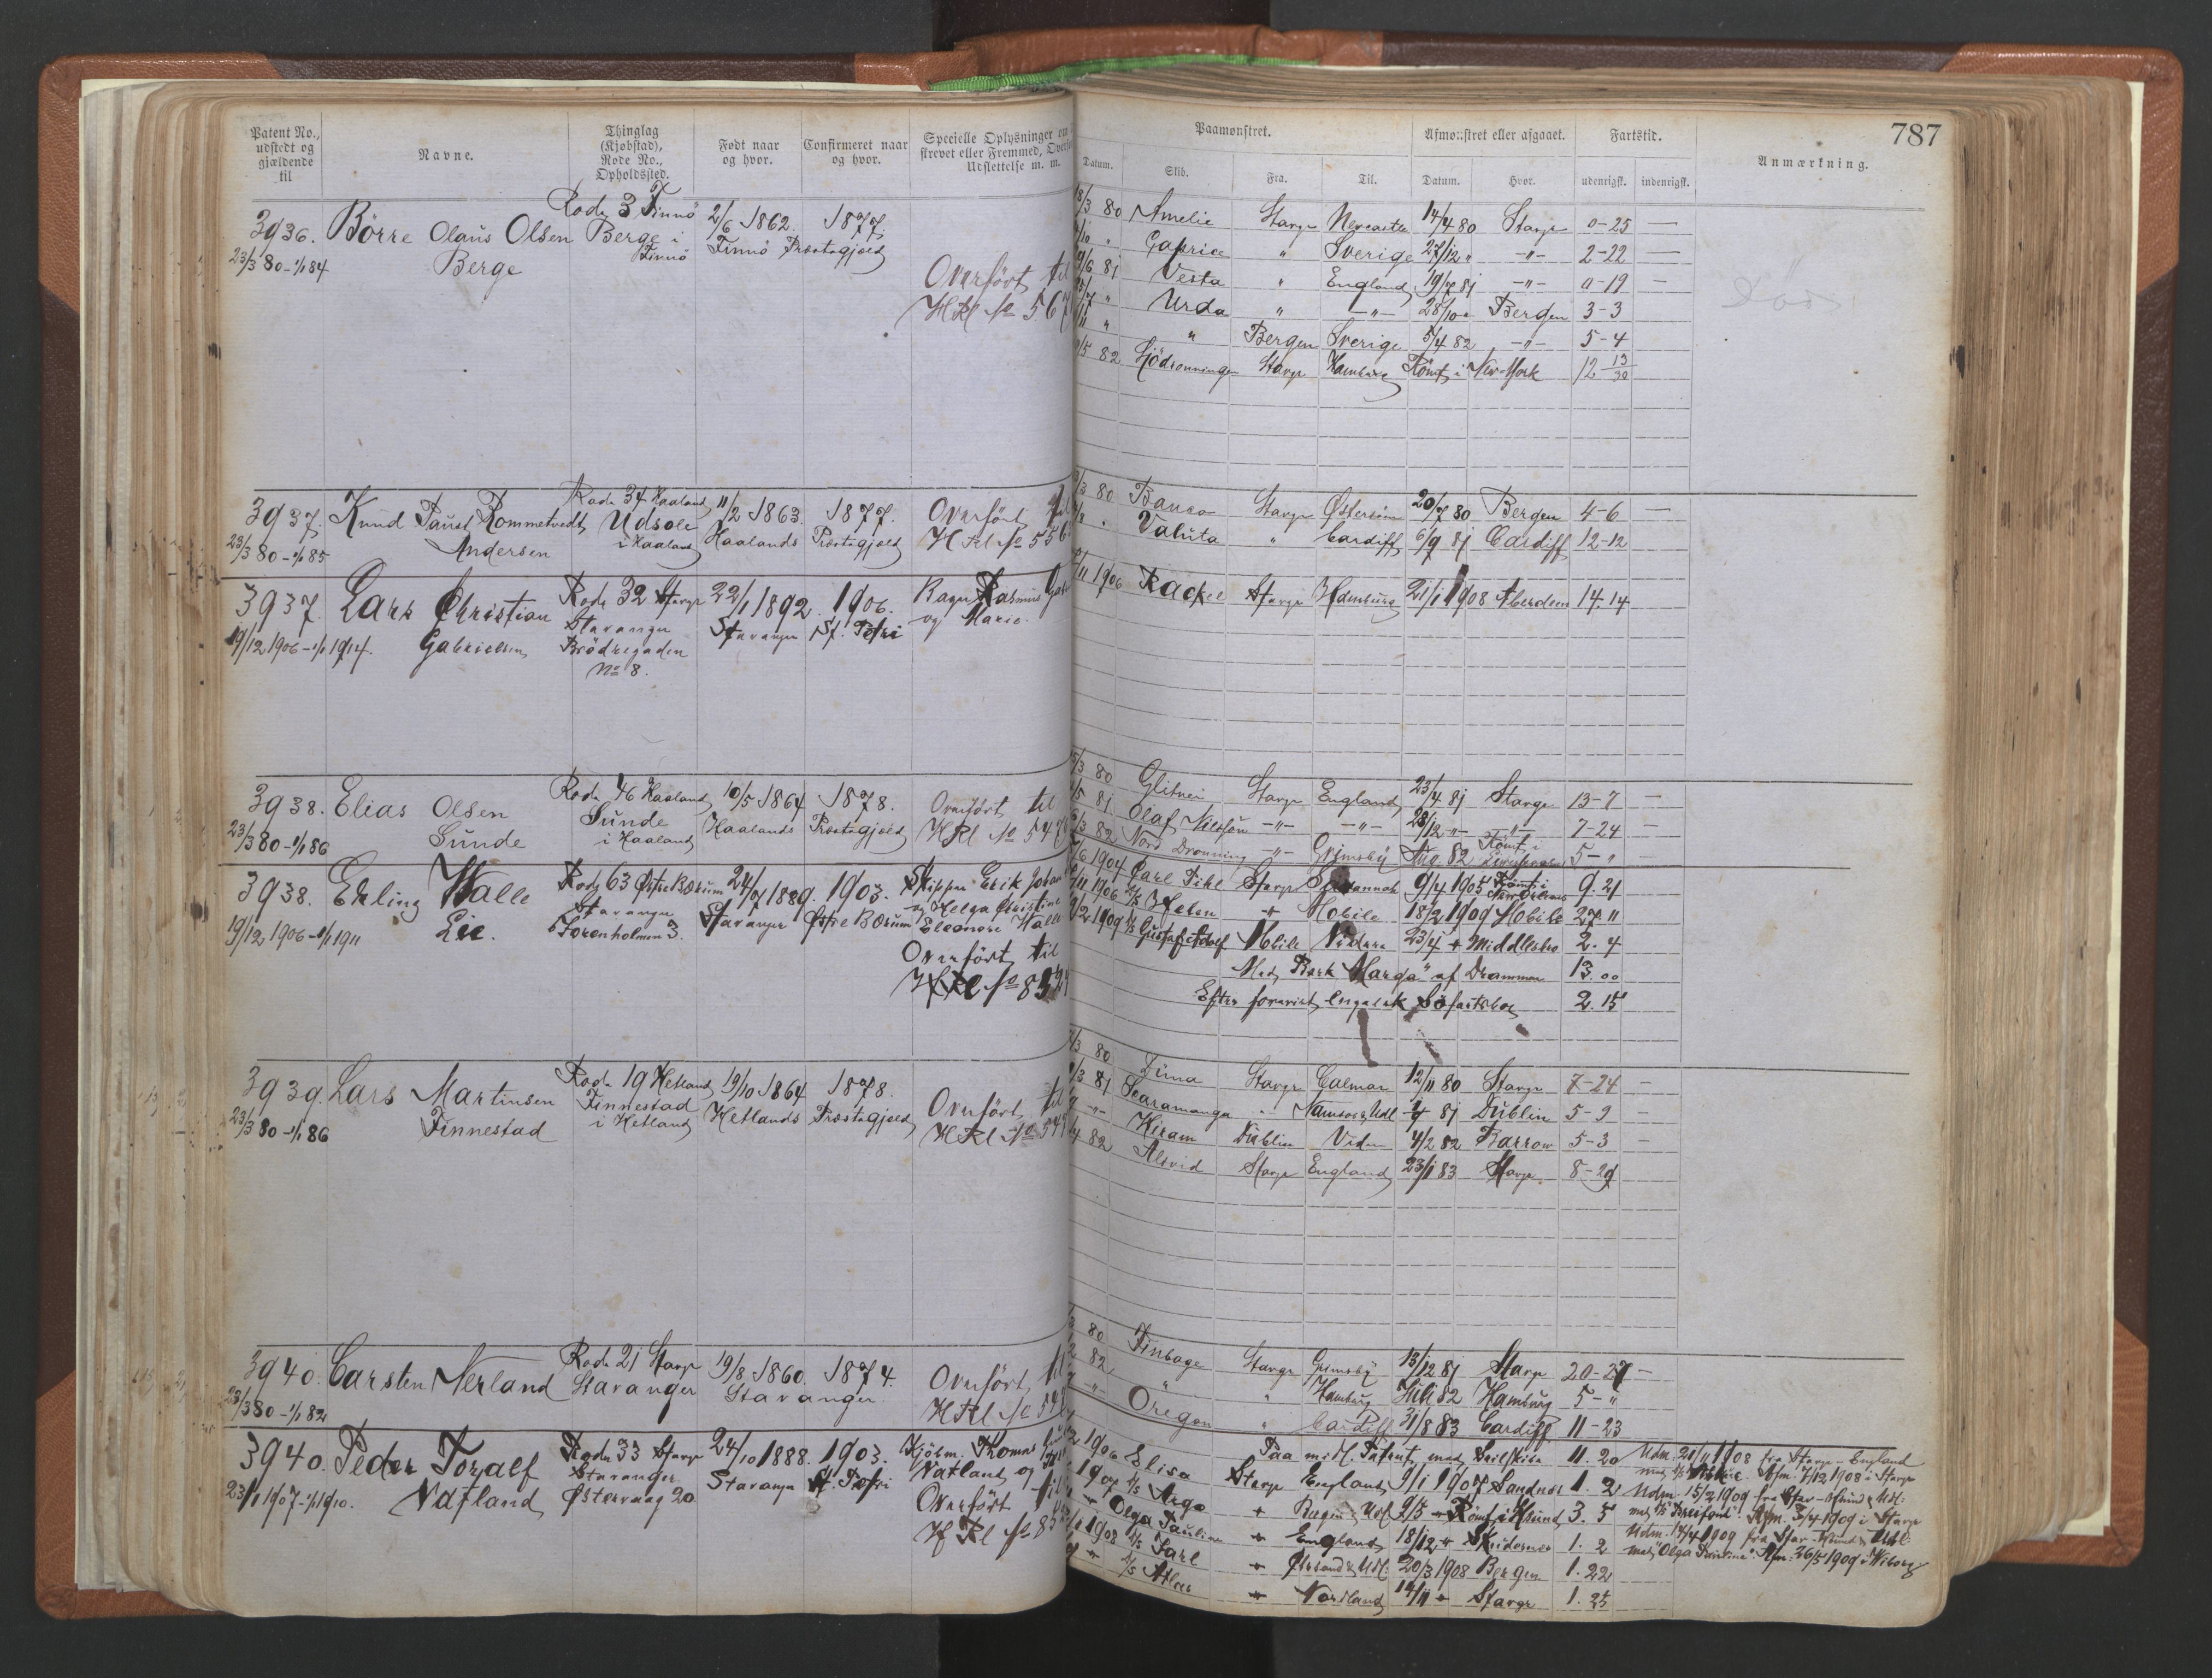 787
Patent No., udstedt og gjældende til
Navne.
Thinglag (Kjøbstad), Rode No., Opholdssted.
Født naar og hvor.
Confirmeret naar og hvor.
Specielle Oplysninger om
strevet eller Fremmed, Overfø
Udslettelse m. m.
Paamønstret.
Datum. Skib. Fra. Til.
Afmønstret eller afgaaet.
Datum. Hvor.
Fartstid.
udenrigsk. indenrigsk.
Anmærkning.
3936. Börre Olaus Olsen Rode 3 Finnö 2/6 1862. 1877.
23/3 80-1/1 84 Berge Berge i Finnö Finnö Præstegjeld
Overfört til
HRl No 567
18/3 80 Amelie Stavgr Newcastle 14/4 80 Stavgr 0-25 —
Caprice " Sverige 27/12 " -"- 2-22 —
81 Vesta " England 19/7 81 -"- 0-19 —
" Urda " -"- 28/10 " Bergen 3-3
" " Bergen Sverige 5/4 82 -"- 5-4
82 Sjödronningen Stavgr Hamburg Römt i New York 12 13/30
Död
3937. Knud Paust Rommetvedt Rode 34 Haaland 11/2 1863. 1877.
23/3 80-1/1 85 Andersen Udsole i Haaland Haalands Præstegjeld
Overfört til
HRl No 556
80 Banco Stavgr Østersöen 20/7 80 Bergen 4-6 —
" Valuta " Cardiff 6/9 81 Cardiff 12-12
3937. Lars Christian Rode 32 Stavgr 22/1 1892. 1906.
19/12 1906-1/1 1914. Gabrielsen Stavanger Stavanger St. Petri
Brödregaden
No 8.
Rasmus
og Marie.
11 1906 Rackel Stavgr Hamburg 21/1 1908 Aberdeen 14.14
3938. Elias Olsen Rode 46 Haaland 10/5 1864 1878.
23/3 80-1/1 86 Sunde Sunde i Haaland Haalands Præstegjeld
Overfört til
HRl No 547
80 Glitner Stavgr England 23/4 81 Stavgr 13-7 —
81 Olaf Nilssön -"- -"- 28/12 -"- -"- 7-24 —
82 Nord Dronning -"- Grimsby Aug. 82 Römt i 5-" —
3938. Erling Walle Rode 63 Østre Bærum 24/7 1889. 1903.
19/12 1906-1/1 1911 Lie. Stavanger Stavanger Østre Bærum
Sörenholmen 3.
Skipper Erik Johan
og Helga Christine
Eleonore Walle
Overfört til
HRl No 85
1904 Carl Pihl Stavgr Savannah 9/4 1905 Römt i New Orleans 9.21
1906 Helen " Mobile 18/2 1909 Mobile 27.11
1909 Gustaf Adolf Mobile Videre 23/4 " Middlesbro 2.4
Med Bark "Marga" af Drammen 13.00
Efter forevist engelsk Söfartsbog 2.15
3939. Lars Martinsen Rode 19 Hetland 19/10 1864 1878.
23/3 80-1/1 86 Finnestad Finnestad i Hetland Hetlands Præstegjeld
Overfört til
HRl No 548
80 Düna Stavgr Calmar 12/11 80 Stavgr 7-24 —
81 Scaramanga " Namsos & Udl. 81 Dublin 5-9 —
-"- Hiram Dublin Videre 4/2 82 Barrow 5-3 —
82 Alvid Stavgr England 23/1 83 Stavgr. 8-29
3940. Carsten Nerland Rode 21 Stavgr 19/8 1860. 1874.
23/3 80-1/1 82 Stavanger Stavanger.
Overfört til
HRl No
80 Finboge Stavgr Grimsby 13/12 81 Stavgr 20-27 —
82 " " Hamburg Juli 82 Hamburg 5-"
-"- Oregon " Cardiff 31/8 83 Cardiff 11-23
3940. Peder Toralf Rode 33 Stavgr 24/10 1888. 1903.
23/1 1907-1/1 1910. Natland Stavanger Stavanger St. Petri
Østervaag 20
Kjøbm. Thomas
Natland og
Overfört til
HRl No 85
1906 Elisa Paa midl. Patent med Seilskibe 11.20
1907 Argo Stavgr England 9/1 1907 Sandnes 1.2
" Olga Pauline " Bergen & Udl. 9/5 " Römt i 3.5
1908 Jarl " England 18/12 " Skudesnes 1.2
" Atlas " & Udl: 20/3 1908 Bergen 1.22
" Nordland 14/11 " Stavgr 1.25
Udm. 20/11 1908 fra Stavgr - England
med Afm. 7/12 1908 i Stavgr
Udm. 15/2 1909 fra Stav & Udl:
med Afm. 5/4 1909 i Stavgr
Udm. 14/4 1909 fra Stav & Udl:
med "Olga Pauline" Afm. 26/5 1909 i Wiborg